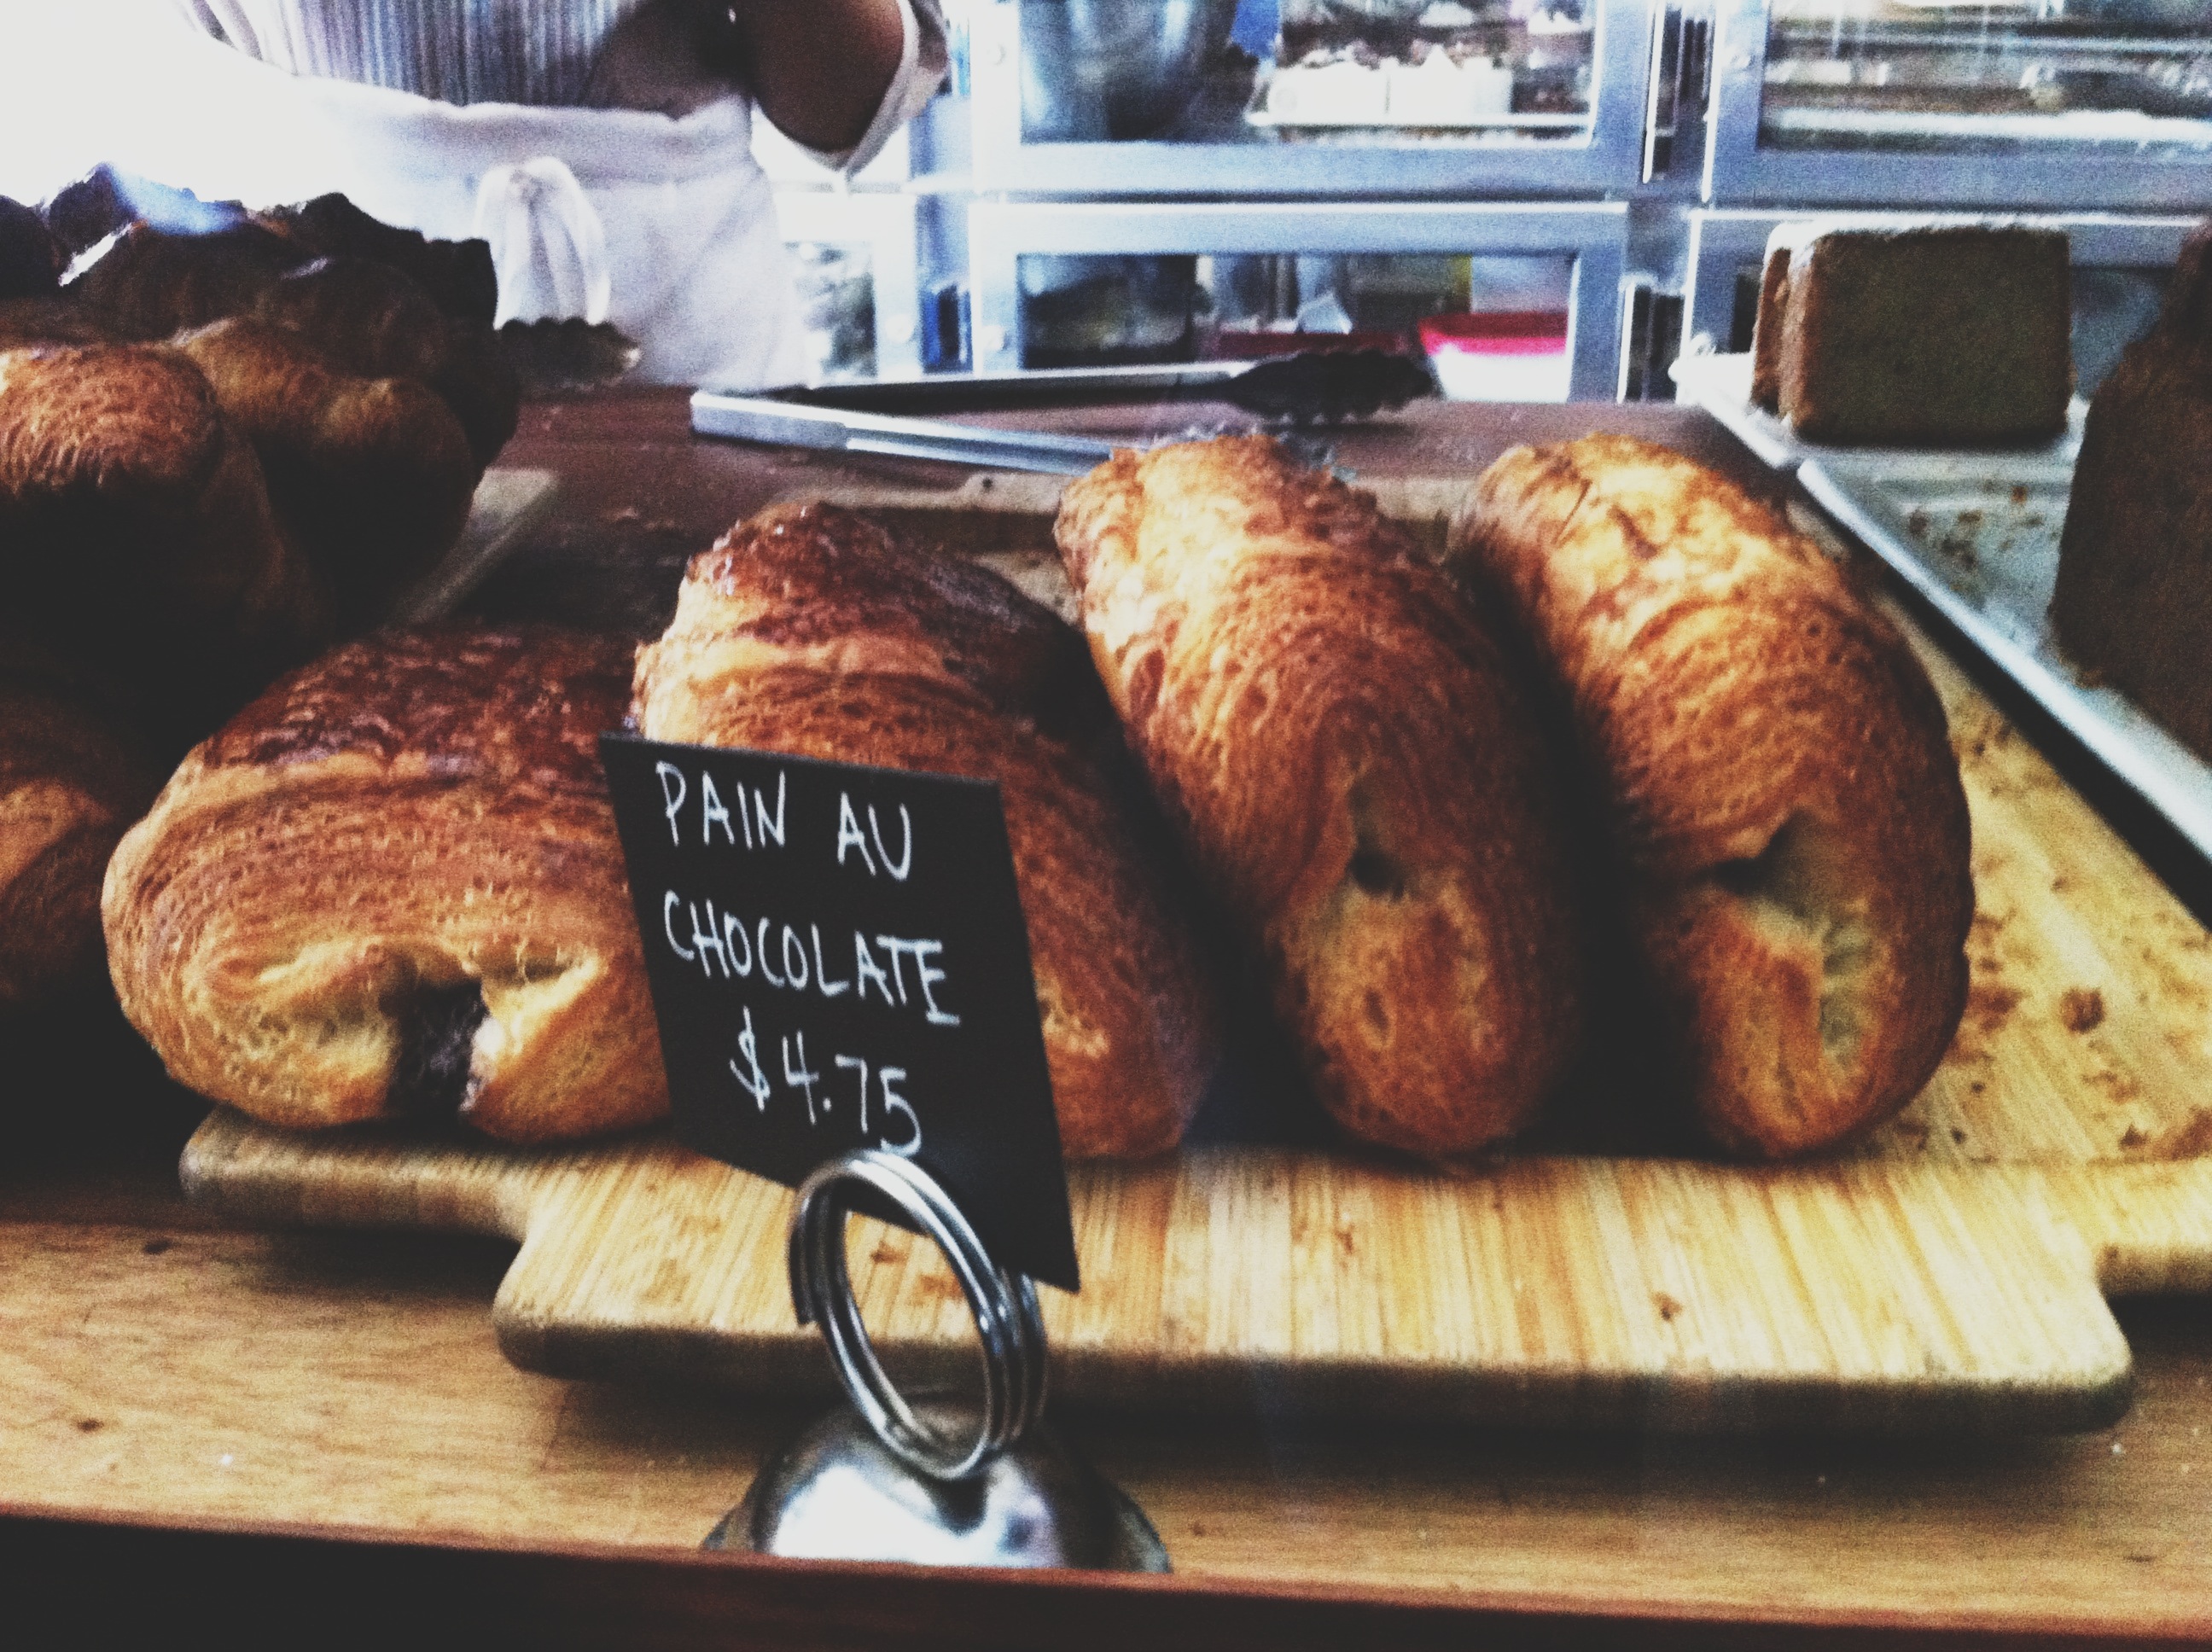 PAIN AU
CHOCOLATE
$4.75